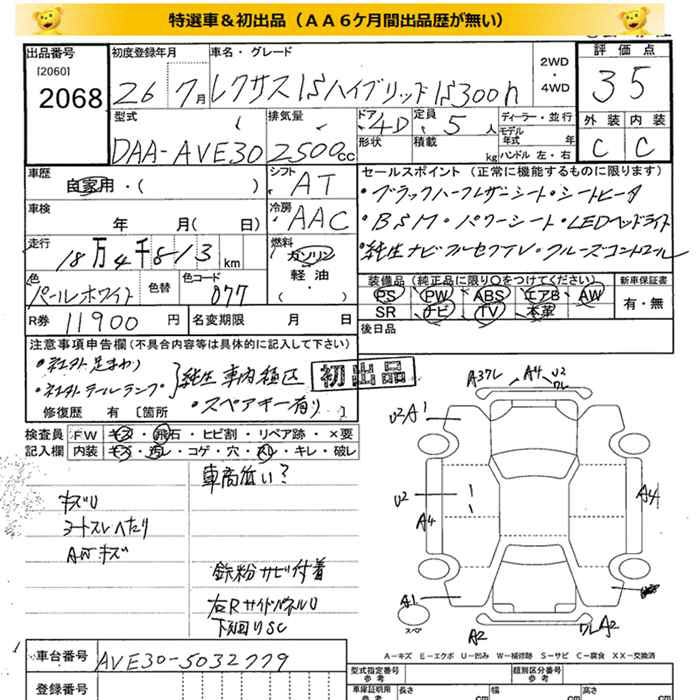 特選車＆初出品（ＡＡ６ケ月間出品歴が無い）
出品番号
[2060]
2068
初度登録年月
26 7月
車名・グレード
レクサスISハイブリッド IS300h
2WD
・
4WD
評価点
35
外装 内装
C C
型式
DAA-AVE30
排気量
2500cc
ドア 4D
形状
定員 5人
積載 kg
ディーラー・並行
モデル年式 年
ハンドル 左・右
車歴
自家用・( )
シフト AT
セールスポイント (正常に機能するものに限ります)
・ブラックハーフレザーシート・シートヒータ
・BSM・パワーシート・LEDヘッドライト
・純生ナビフルセグTV・クルーズコントロール
車検
年 月( 日)
冷房 AAC
走行
18万4千813km
燃料
ガソリン
軽油
・( )
色
パールホワイト
色替
色コード
077
装備品 (純正品に限り○をつけてください)
PS PW ABS エアB AW
SR ナビ TV 本革
新車保証書
有・無
R券 11900円
名変期限 月 日
後日品
注意事項申告欄(不具合内容等は具体的に記入して下さい)
・社外足まわり
・社外テールランプ
純生車内積込
・スペアキー有り
修復歴 有 [箇所 ]
初出品
検査員
記入欄
FW キズ・飛石・ヒビ割・リペア跡・×要
内装 キズ・汚レ・コゲ・穴・スレ・キレ・破レ
車高低い？
キズU
シートスレへたり
AWキズ
鉄粉サビ付着
右RサイドパネルU
下廻りSC
A3ワレ
A4
U2
ワレ
U2A1
U2
A4
A4
A1
スペア
A2
ワレA2
A－キズ E－エクボ U－凹み W－補修跡 S－サビ C－腐食 XX－交換済
車台番号
AVE30-5032779
登録番号
型式指定番号
参考
類別区分番号
参考
車庫証明用
参考
長さ cm
幅 cm
高さ cm